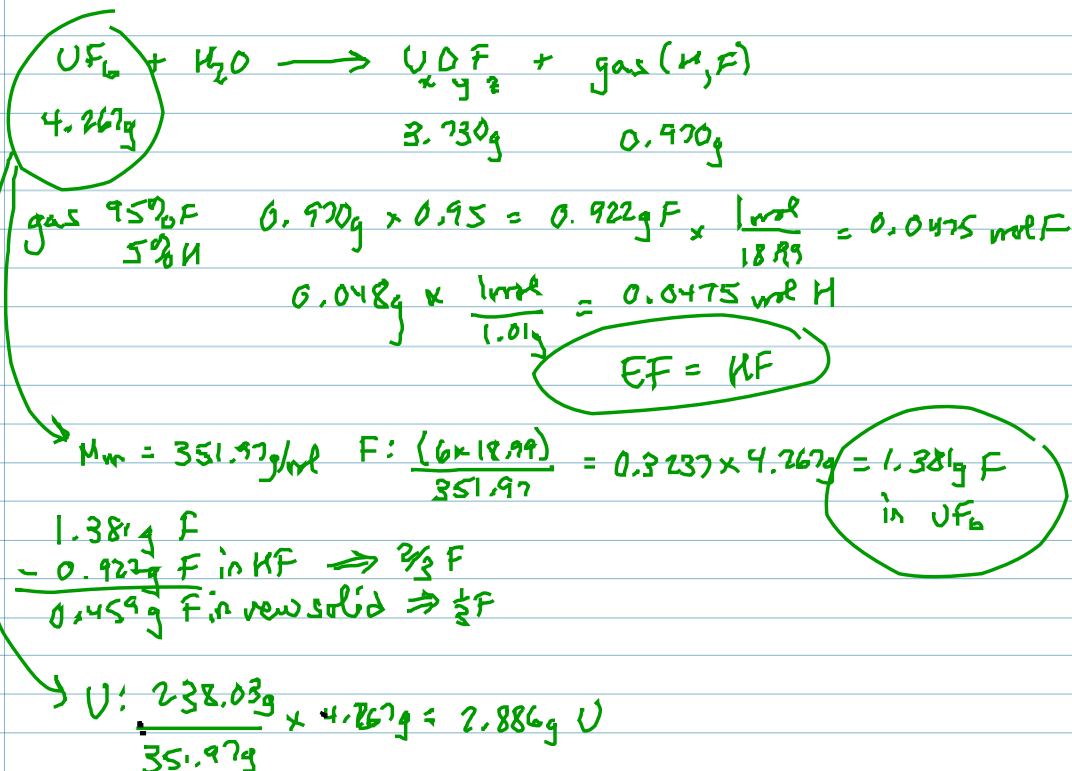 UF₆ + H₂O ⟶ UOF + gas (H,F)
x y z
4.267g 3.730g 0.970g
gas 95% F 0.970g x 0.95 = 0.922g F x 1 mol / 18.99 = 0.0475 mol F
5% H
0.048g x 1 mol / 1.01g = 0.0475 mol H
EF = HF
Mm = 351.97g/mol F: (6x18.99) / 351.97 = 0.3237 x 4.267g = 1.381g F
in UF₆
1.381g F
- 0.922g F in HF ⟹ 2/3 F
0.459g F in new solid ⟹ 1/3 F
U: 238.03g / 351.97g x 4.267g = 2.886g U